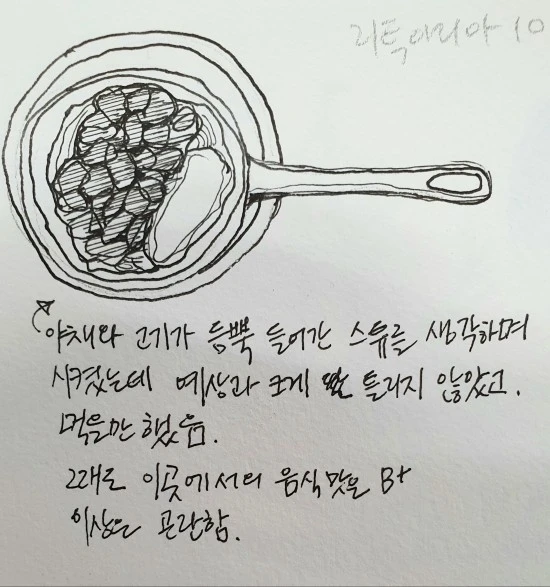 리투아니아 10
야채와 고기가 듬뿍 들어간 스튜를 생각하며
시켰는데 예상과 크게 틀리지 않았고.
먹을만 했음.
그래도 이곳에서의 음식맛은 B+
이상은 곤란함.